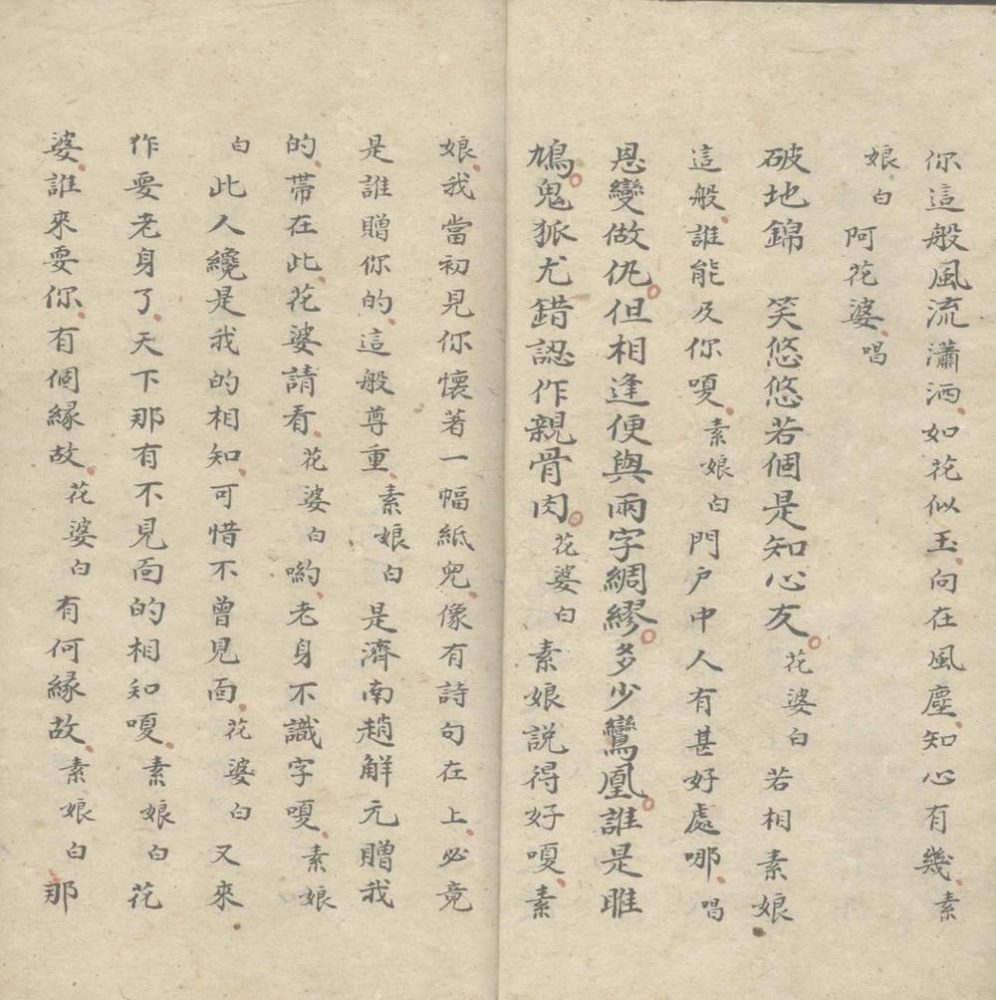 你這般風流瀟洒、如花似玉、向在風塵、知心有幾、素
娘、白阿花婆、唱
破地錦 笑悠悠若個是知心友。花婆白若相素娘
這般、誰能及你嗄、素娘白門户中人有甚好處哪、唱
恩變做仇。但相逢便與兩字綢繆。多少鸞凰。誰是雎
鳩。鬼狐尤錯認作親骨肉。花婆白素娘説得好嗄、素
娘、我當初見你懷著一幅紙兒、像有詩句在上、必竟
是誰贈你的、這般尊重、素娘白是濟南趙觧元贈我
的、帶在此、花婆請看、花婆白喲、老身不識字嗄、素娘
白此人纔是我的相知、可惜不曾見面、花婆白又來
作耍老身了、天下那有不見面的相知嗄、素娘白花
婆、誰來耍你、有個緣故、花婆白有何緣故、素娘白那